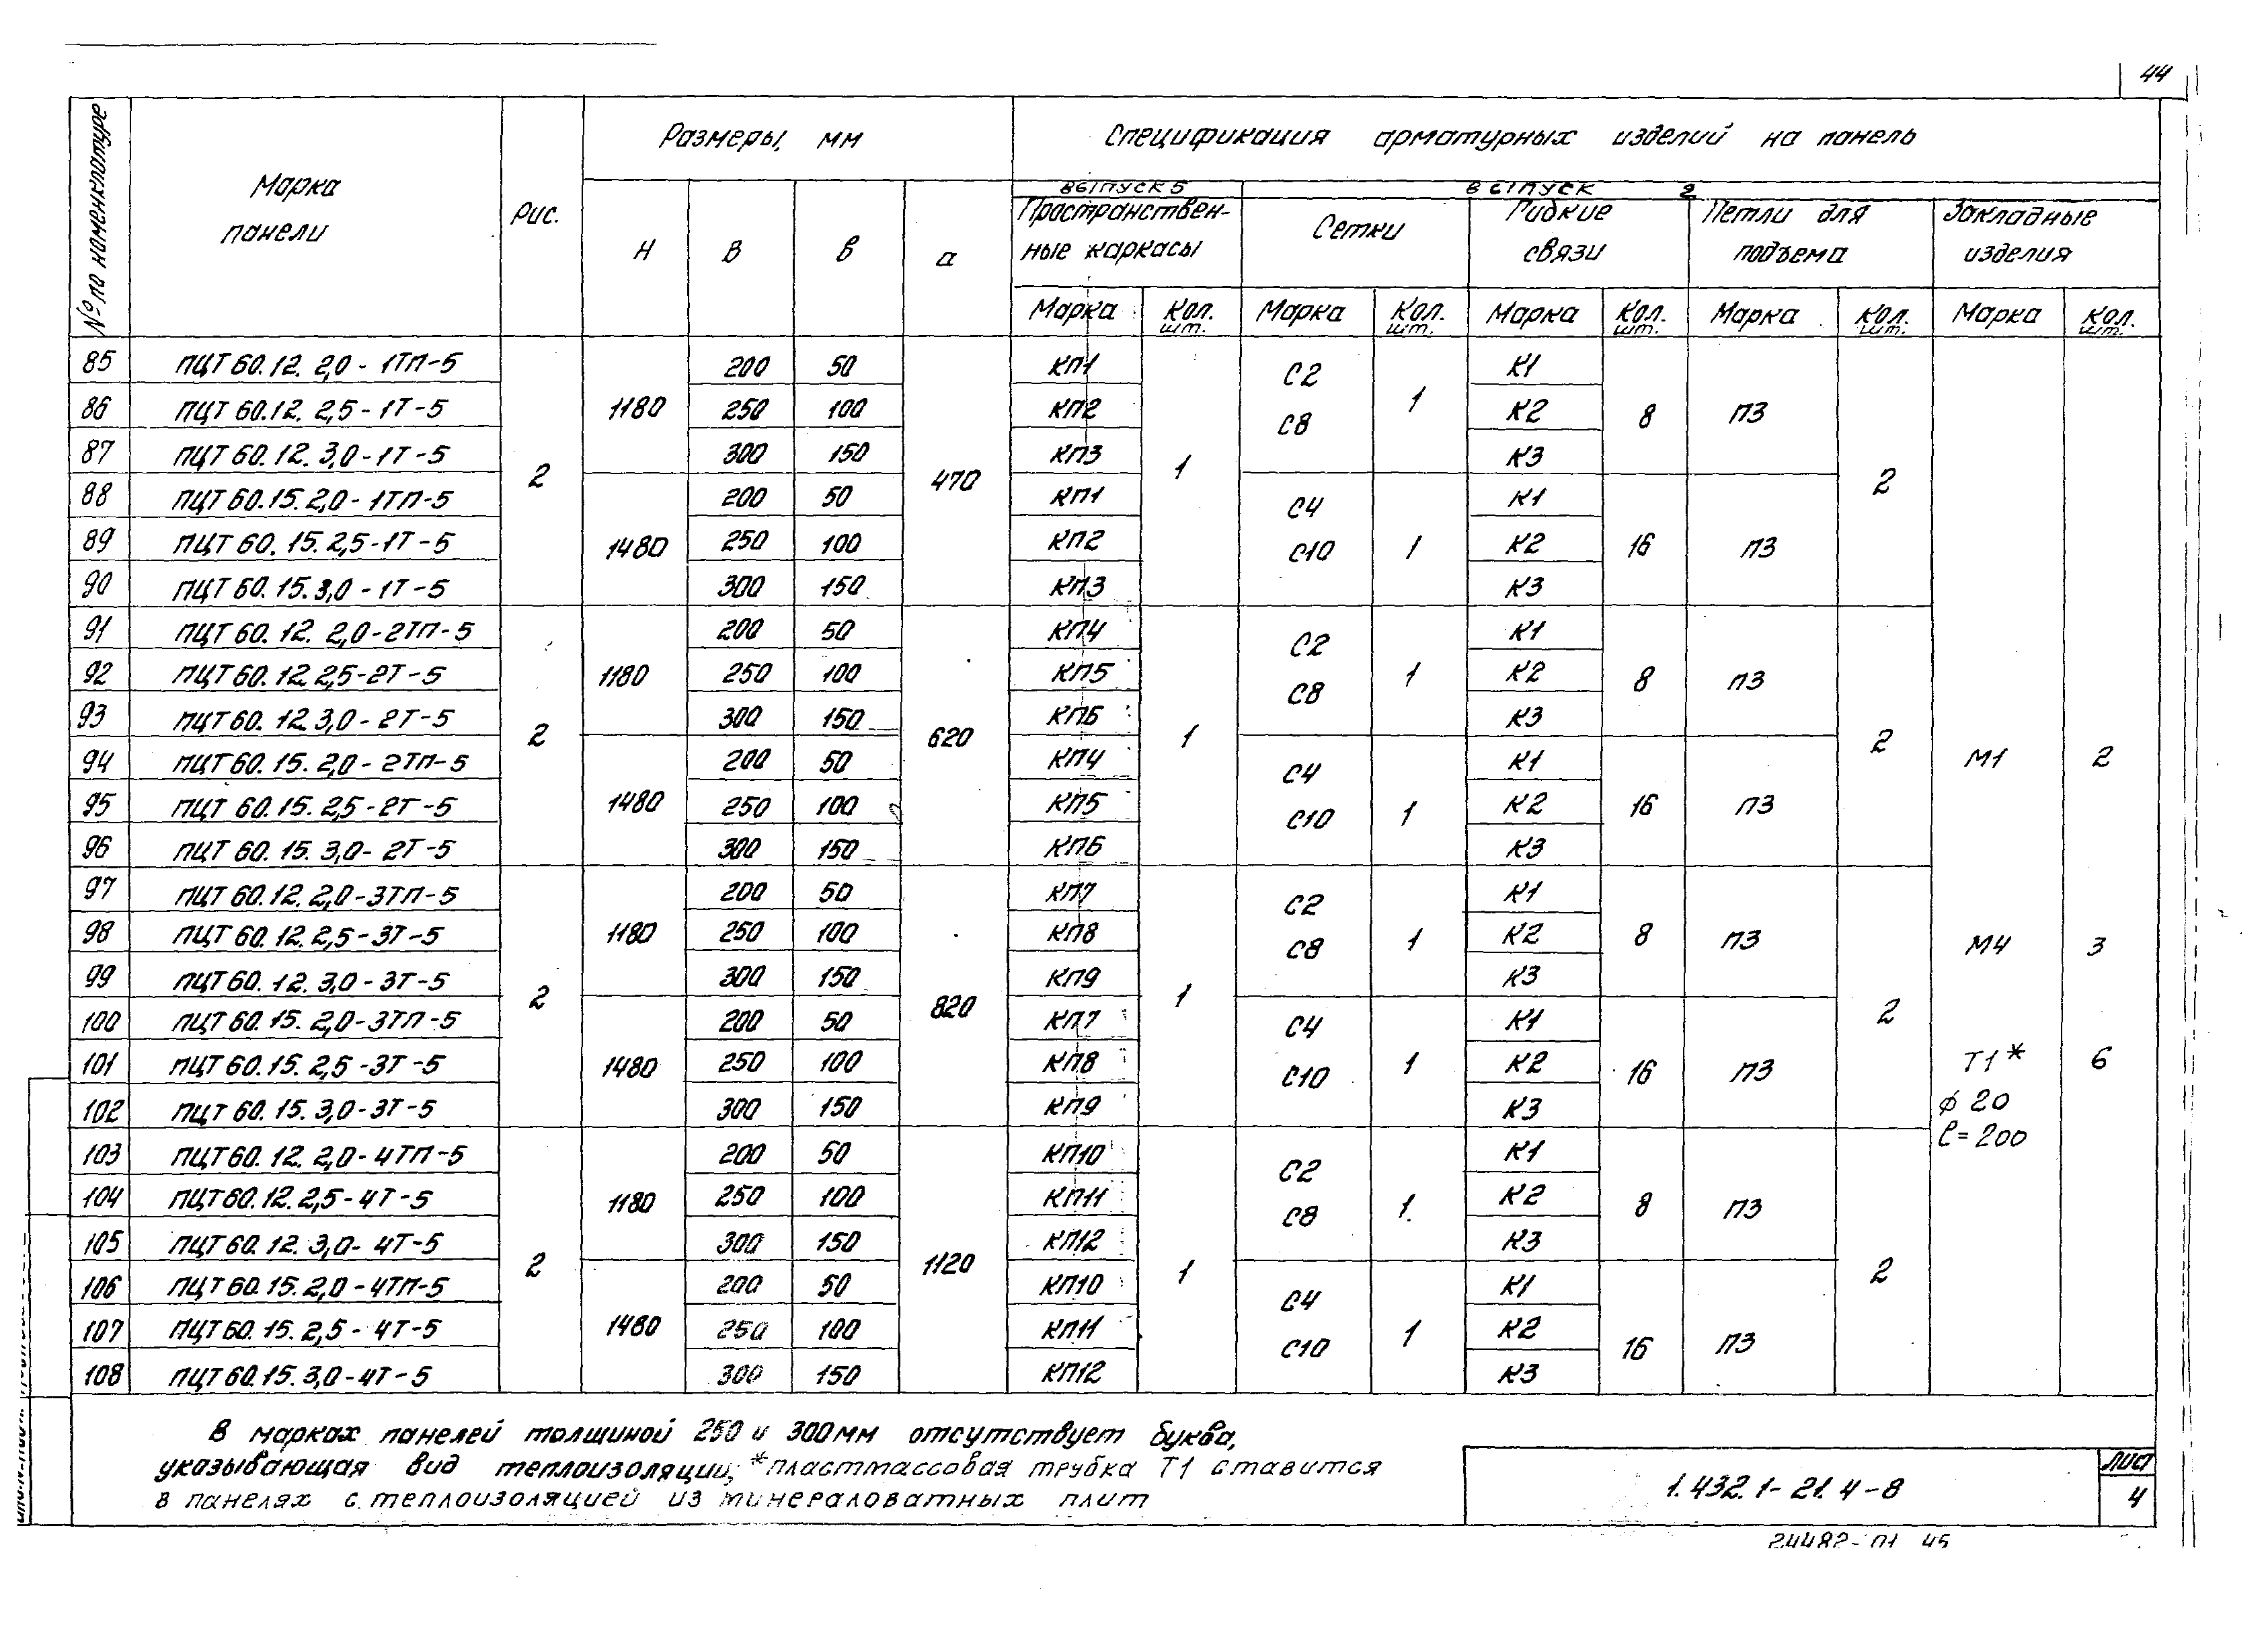 44
№ по номенклатуре
Марка панели
Рис.
Размеры, мм
Спецификация арматурных изделий на панель
выпуск 5
выпуск 2
H B в а
Пространствен-
ные каркасы
Сетки
Гибкие
связи
Петли для
подъема
Закладные
изделия
Марка Кол. шт. Марка Кол. шт. Марка Кол. шт. Марка Кол. шт. Марка Кол. шт.
85 ПЦТ 60.12. 2,0 - 1ТП-5 2 1180 200 50 470 КП1 1 С2 С8 1 К1 8 П3 2
86 ПЦТ 60.12. 2,5 - 1Т-5 250 100 КП2 К2
87 ПЦТ 60.12. 3,0 - 1Т-5 300 150 КП3 К3
88 ПЦТ 60.15. 2,0 - 1ТП-5 1480 200 50 КП1 С4 С10 1 К1 16 П3
89 ПЦТ 60.15. 2,5 - 1Т-5 250 100 КП2 К2
90 ПЦТ 60.15. 3,0 - 1Т-5 300 150 КП3 К3
91 ПЦТ 60.12. 2,0 - 2ТП-5 2 1180 200 50 620 КП4 1 С2 С8 1 К1 8 П3 2
92 ПЦТ 60.12. 2,5 - 2Т-5 250 100 КП5 К2
93 ПЦТ 60.12. 3,0 - 2Т-5 300 150 КП6 К3
94 ПЦТ 60.15. 2,0 - 2ТП-5 1480 200 50 КП4 С4 С10 1 К1 16 П3 М1 2
95 ПЦТ 60.15. 2,5 - 2Т-5 250 100 КП5 К2
96 ПЦТ 60.15. 3,0 - 2Т-5 300 150 КП6 К3
97 ПЦТ 60.12. 2,0 - 3ТП-5 2 1180 200 50 820 КП7 1 С2 С8 1 К1 8 П3 2
98 ПЦТ 60.12. 2,5 - 3Т-5 250 100 КП8 К2 М4 3
99 ПЦТ 60.12. 3,0 - 3Т-5 300 150 КП9 К3
100 ПЦТ 60.15. 2,0 - 3ТП-5 1480 200 50 КП7 С4 С10 1 К1 16 П3
101 ПЦТ 60.15. 2,5 - 3Т-5 250 100 КП8 К2 Т1* 6
102 ПЦТ 60.15. 3,0 - 3Т-5 300 150 КП9 К3 ϕ 20
103 ПЦТ 60.12. 2,0 - 4ТП-5 2 1180 200 50 1120 КП10 1 С2 С8 1 К1 8 П3 2 ℓ=200
104 ПЦТ 60.12. 2,5 - 4Т-5 250 100 КП11 К2
105 ПЦТ 60.12. 3,0 - 4Т-5 300 150 КП12 К3
106 ПЦТ 60.15. 2,0 - 4ТП-5 1480 200 50 КП10 С4 С10 1 К1 16 П3
107 ПЦТ 60.15. 2,5 - 4Т-5 250 100 КП11 К2
108 ПЦТ 60.15. 3,0 - 4Т-5 300 150 КП12 К3
В марках панелей толщиной 250 и 300мм отсутствует буква,
указывающая вид теплоизоляции; *пластмассовая трубка Т1 ставится
в панелях с теплоизоляцией из минераловатных плит
1.432.1-21.4-8
Лист
4
24482-01 45